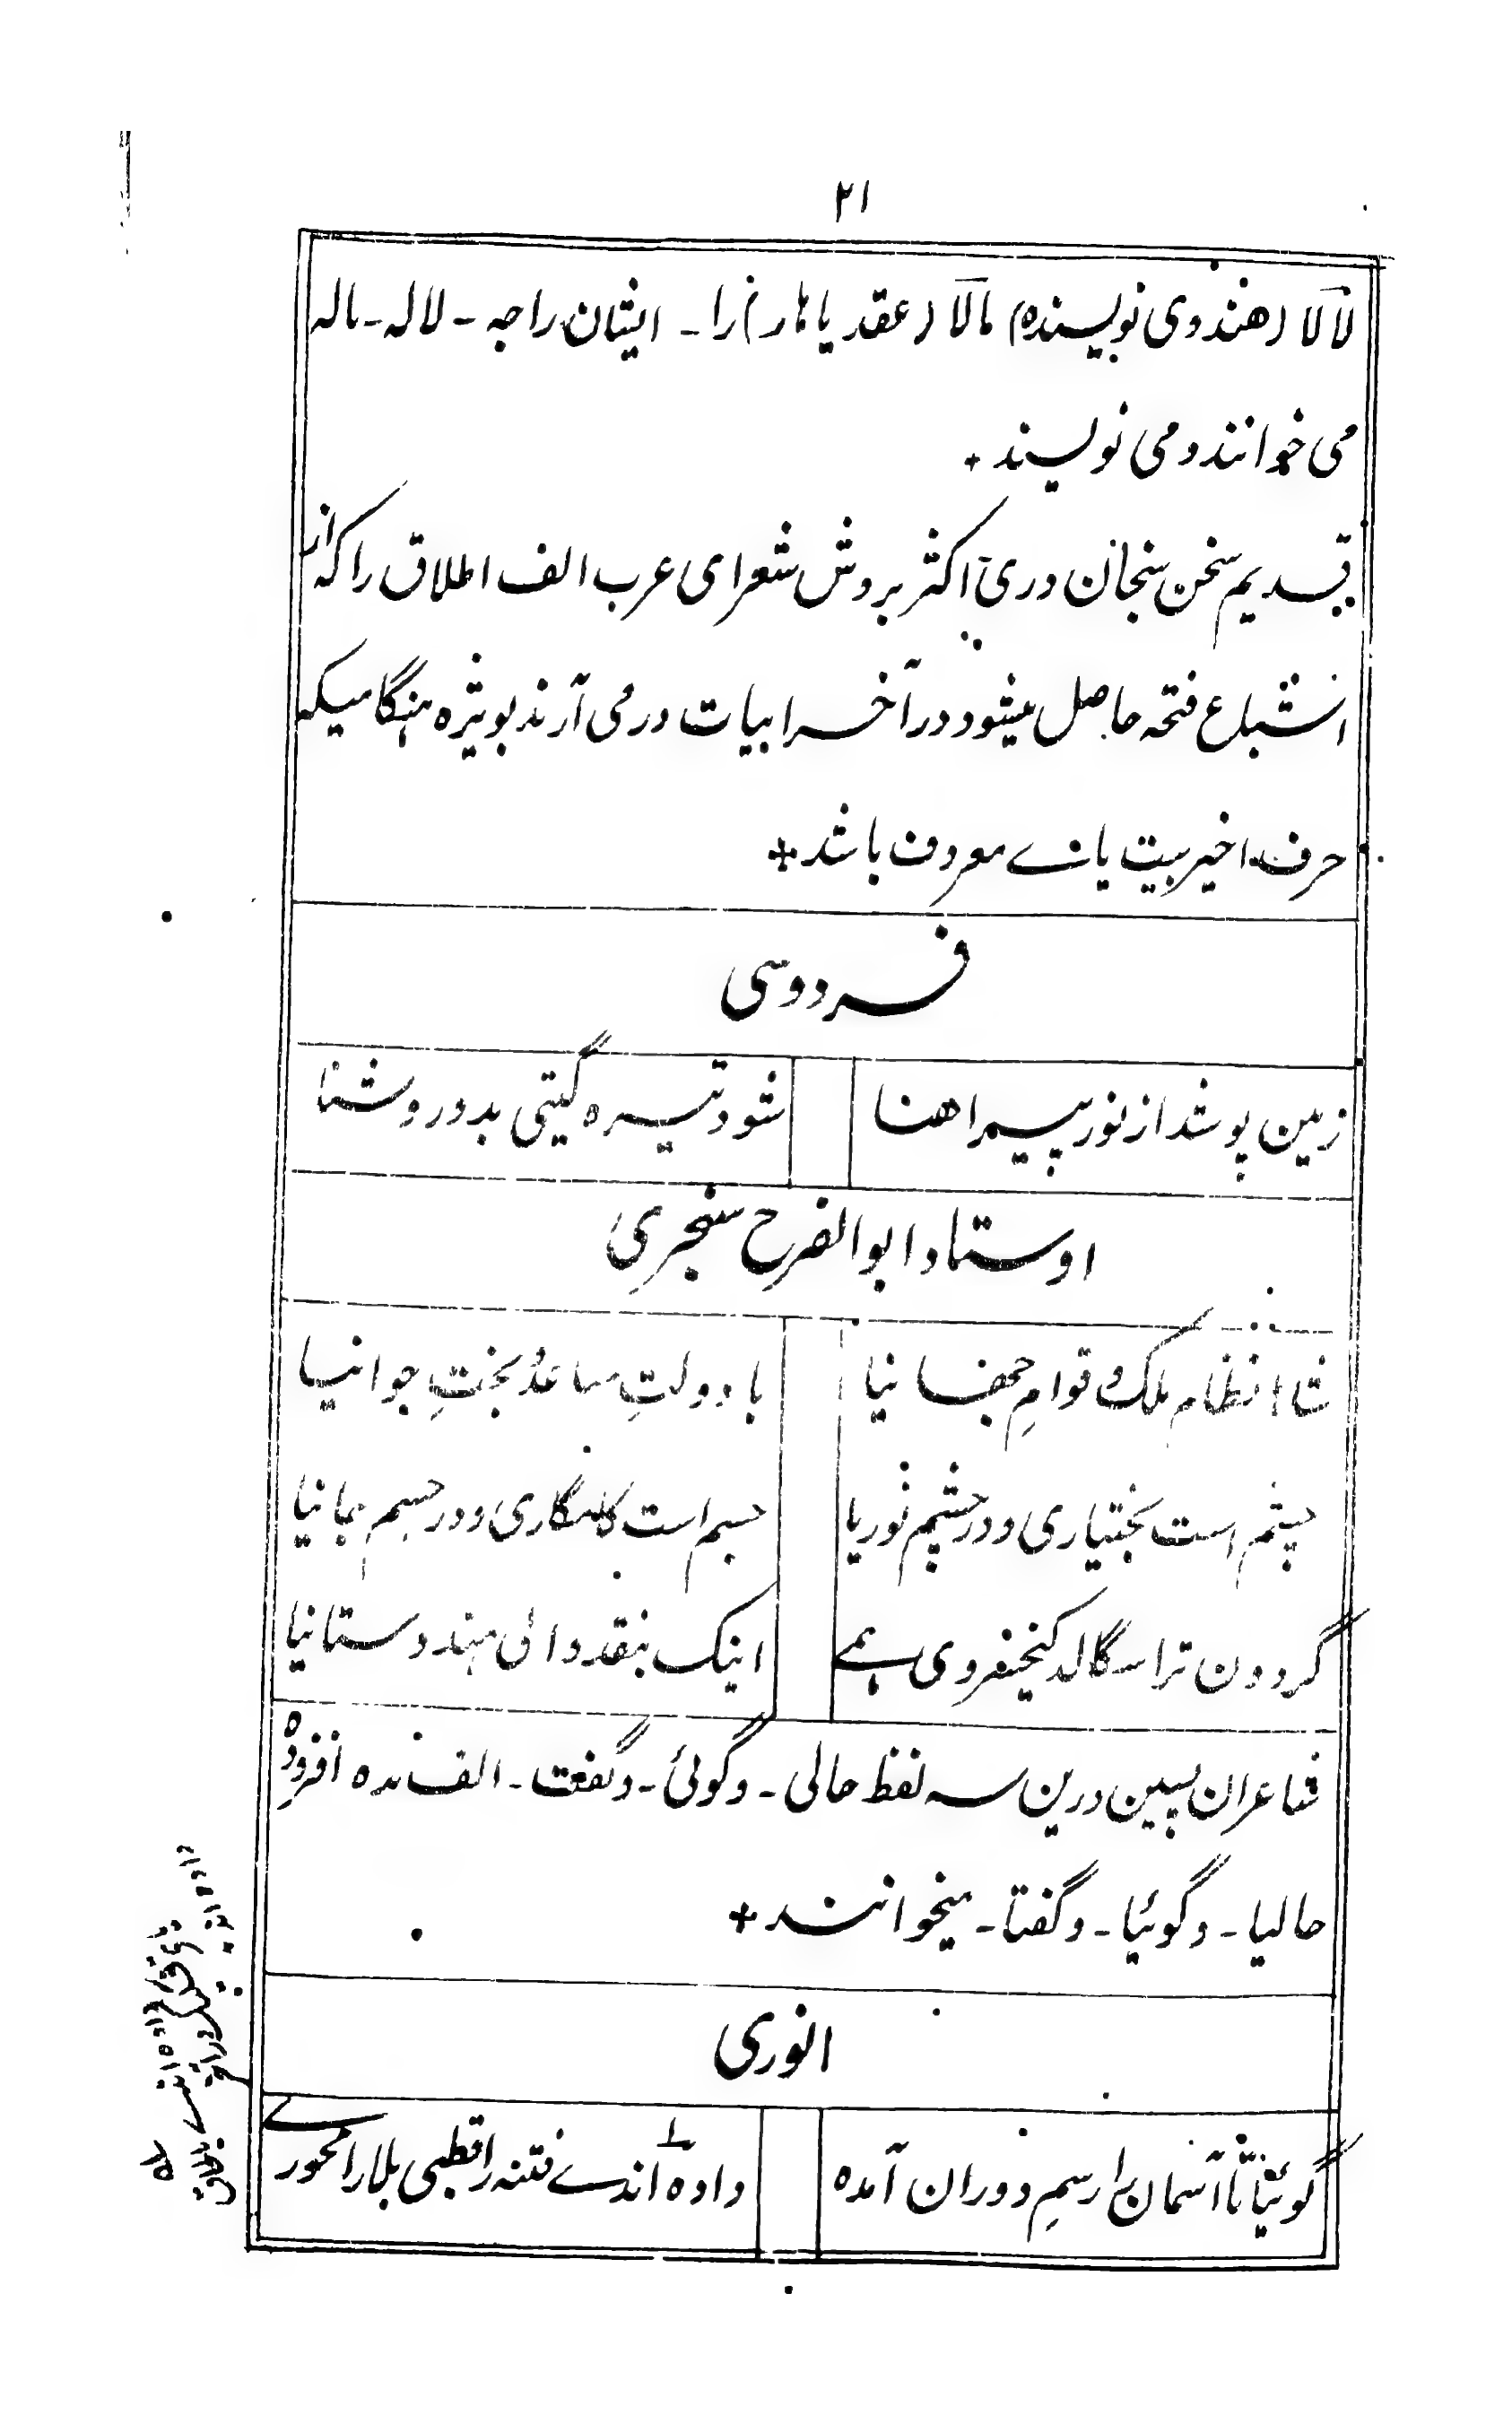 ۲۱
لاَلا (هندوی نویسنده) مالا (عقد یا هار) را - ایشان راجه - لاله - ماله
می خوانند و می نویسند +
قدیم سخن سنجان دری اکثر بروش شعرای عرب الف اطلاق را که از
اشباع فتحه حاصل میشود در آخر ابیات در می آرند بویژه هنگامیکه
حرف اخیر بیت یاے معروف باشد +
فردوسی
زمین پوشد از نور پیراهنا
شود تیره گیتی بدو روشنا
اوستاد ابوالفرح سنجری
شاها نظام ملک و قوامِ جهانیا
با دولتِ مساعد و بختِ جوانیا
چشم است بختیاری و در چشم نوریا
جسم است کامگاری و در جسم جانیا
گردون ترا سگالد کیخسروی ہمے
اینک بنقد وائی هندوستانیا
شاعران پسین درین سه لفظ حالی - و گوئی - و گفت - الف زده افزوده
حالیا - و گوئیا - و گفتا - میخوانند +
انوری
گوئیا تا آسمان را رسمِ دوران آمده
داده اندے فتنه را قطبی بلا را محورے